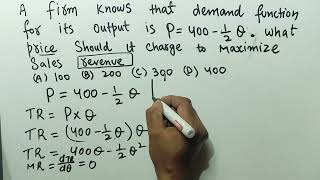 A firm knows that demand function
for its output is P = 400 - 1/2 Q. what
price should it charge to maximize
Sales revenue
(A) 100 (B) 200 (C) 300 (D) 400
P = 400 - 1/2 Q
TR = P × Q
TR = (400 - 1/2 Q) Q
TR = 400Q - 1/2 Q²
MR = dTR/dQ = 0